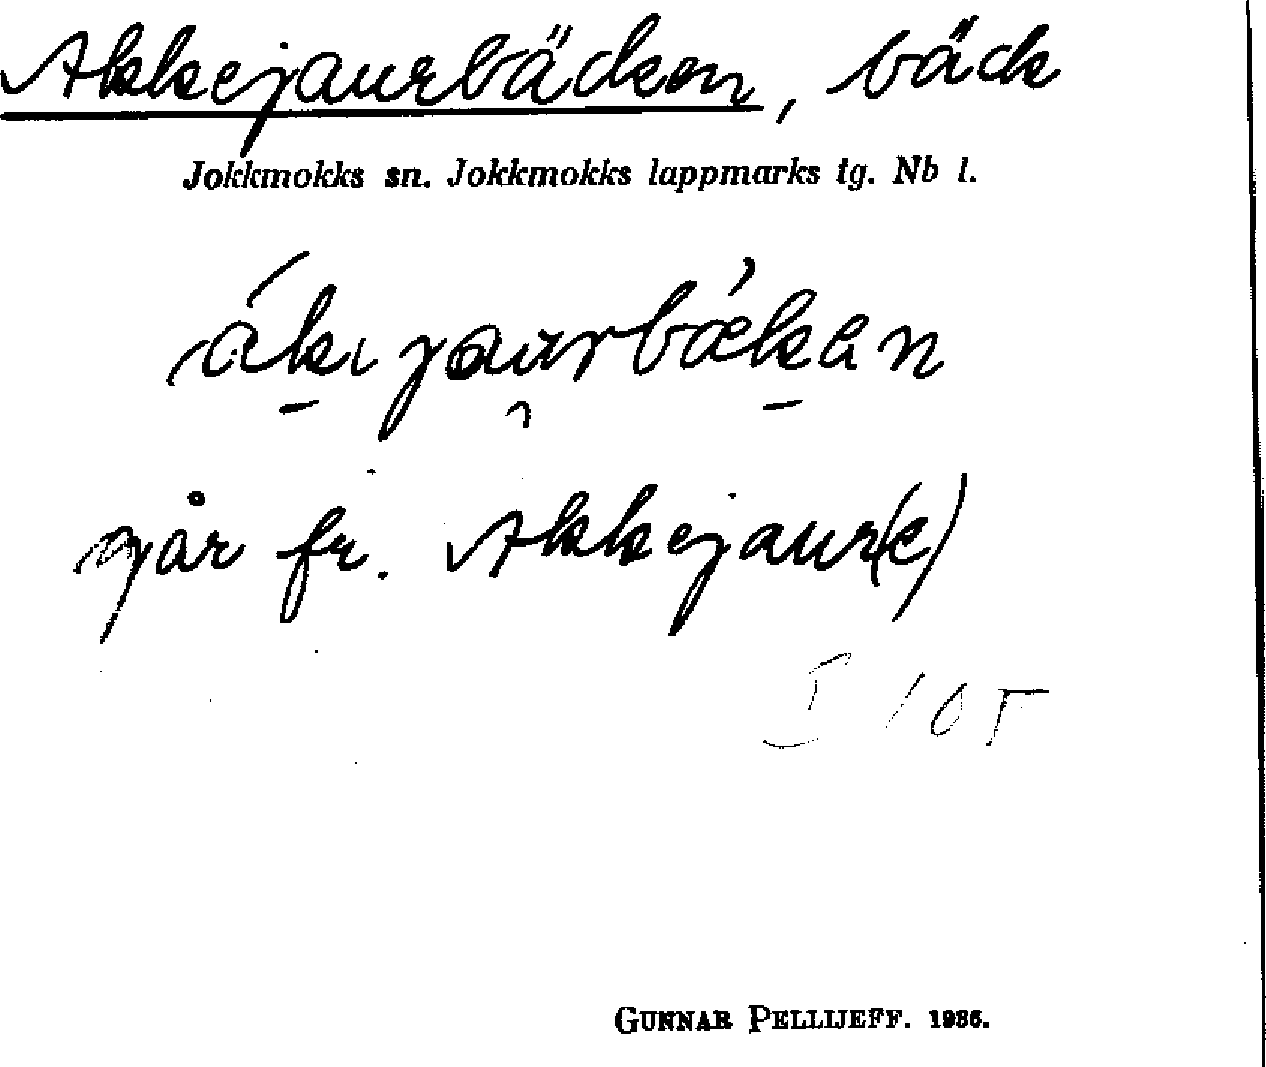 Akkejaurbäcken, bäck
Jokkmokks sn. Jokkmokks lappmarks tg. Nb l.
ák̠ıjau̯rbæ̀k̠an
går fr. Akkejaur(e)
I 105
GUNNAR PELLIJEFF. 1986.